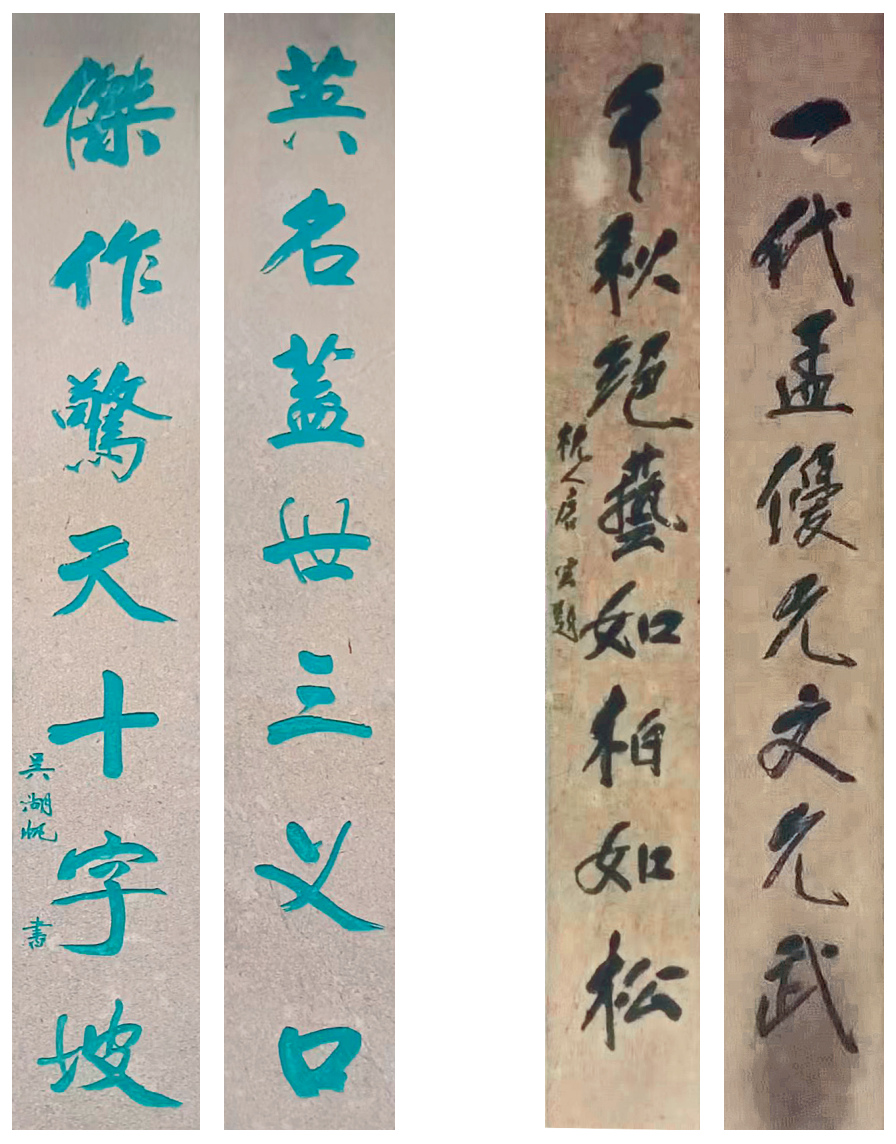 一代孟優允文允武
千秋絕藝如柏如松
杭人唐雲題
英名蓋世三义口
傑作驚天十字坡
吳湖帆書